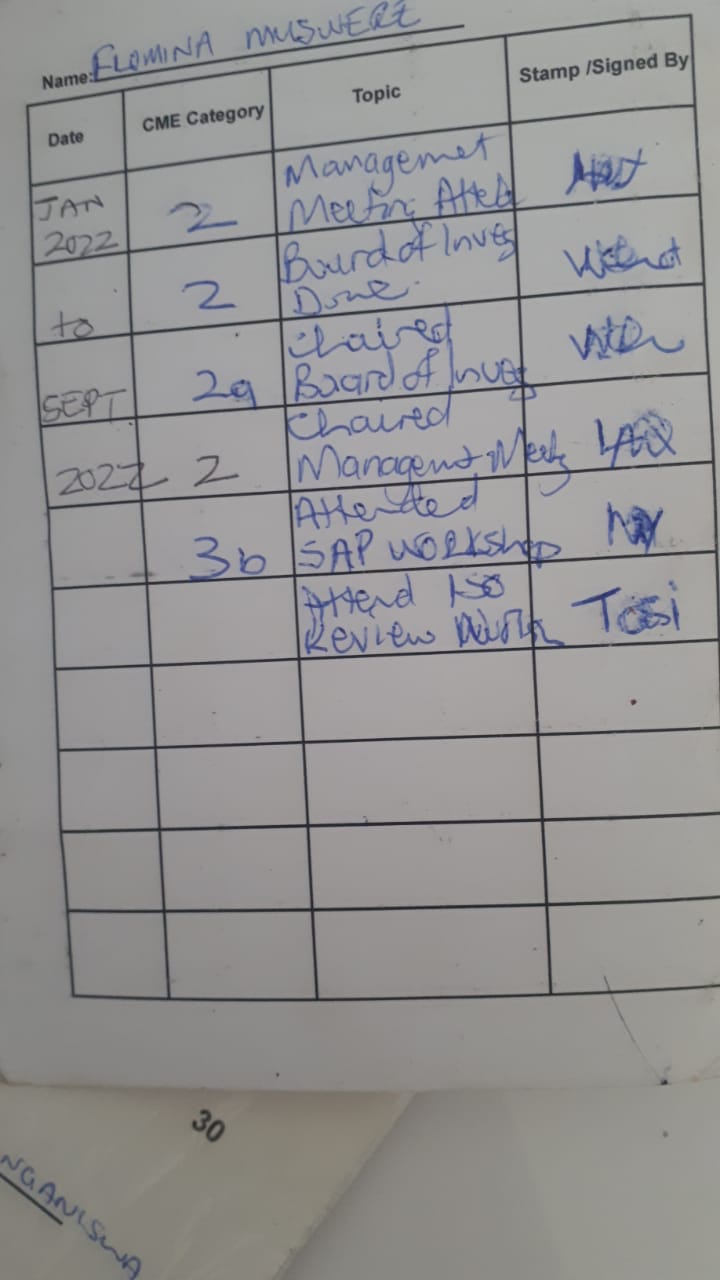 Name: FLOMINA MUSWERE
Date CME Category Topic Stamp /Signed By
JAN 2022 2 Managemet
Meeting Atte
2 Board of Inves
to Done
Chaired
SEPT 2a Board of Inves
Chaired
2022 2 Managemt Meetg
Attended
3b SAP WORKshop
Attend ISO
Review Tosi
30
NGANISWA